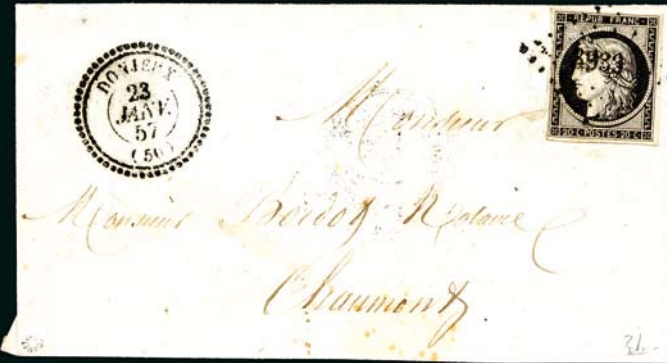 DONJEUX
23
JANV.
57
(50)
REPUB FRANC
3933
20 C POSTES 20 C
Monsieur
Monsieur Notaire
Chaumont